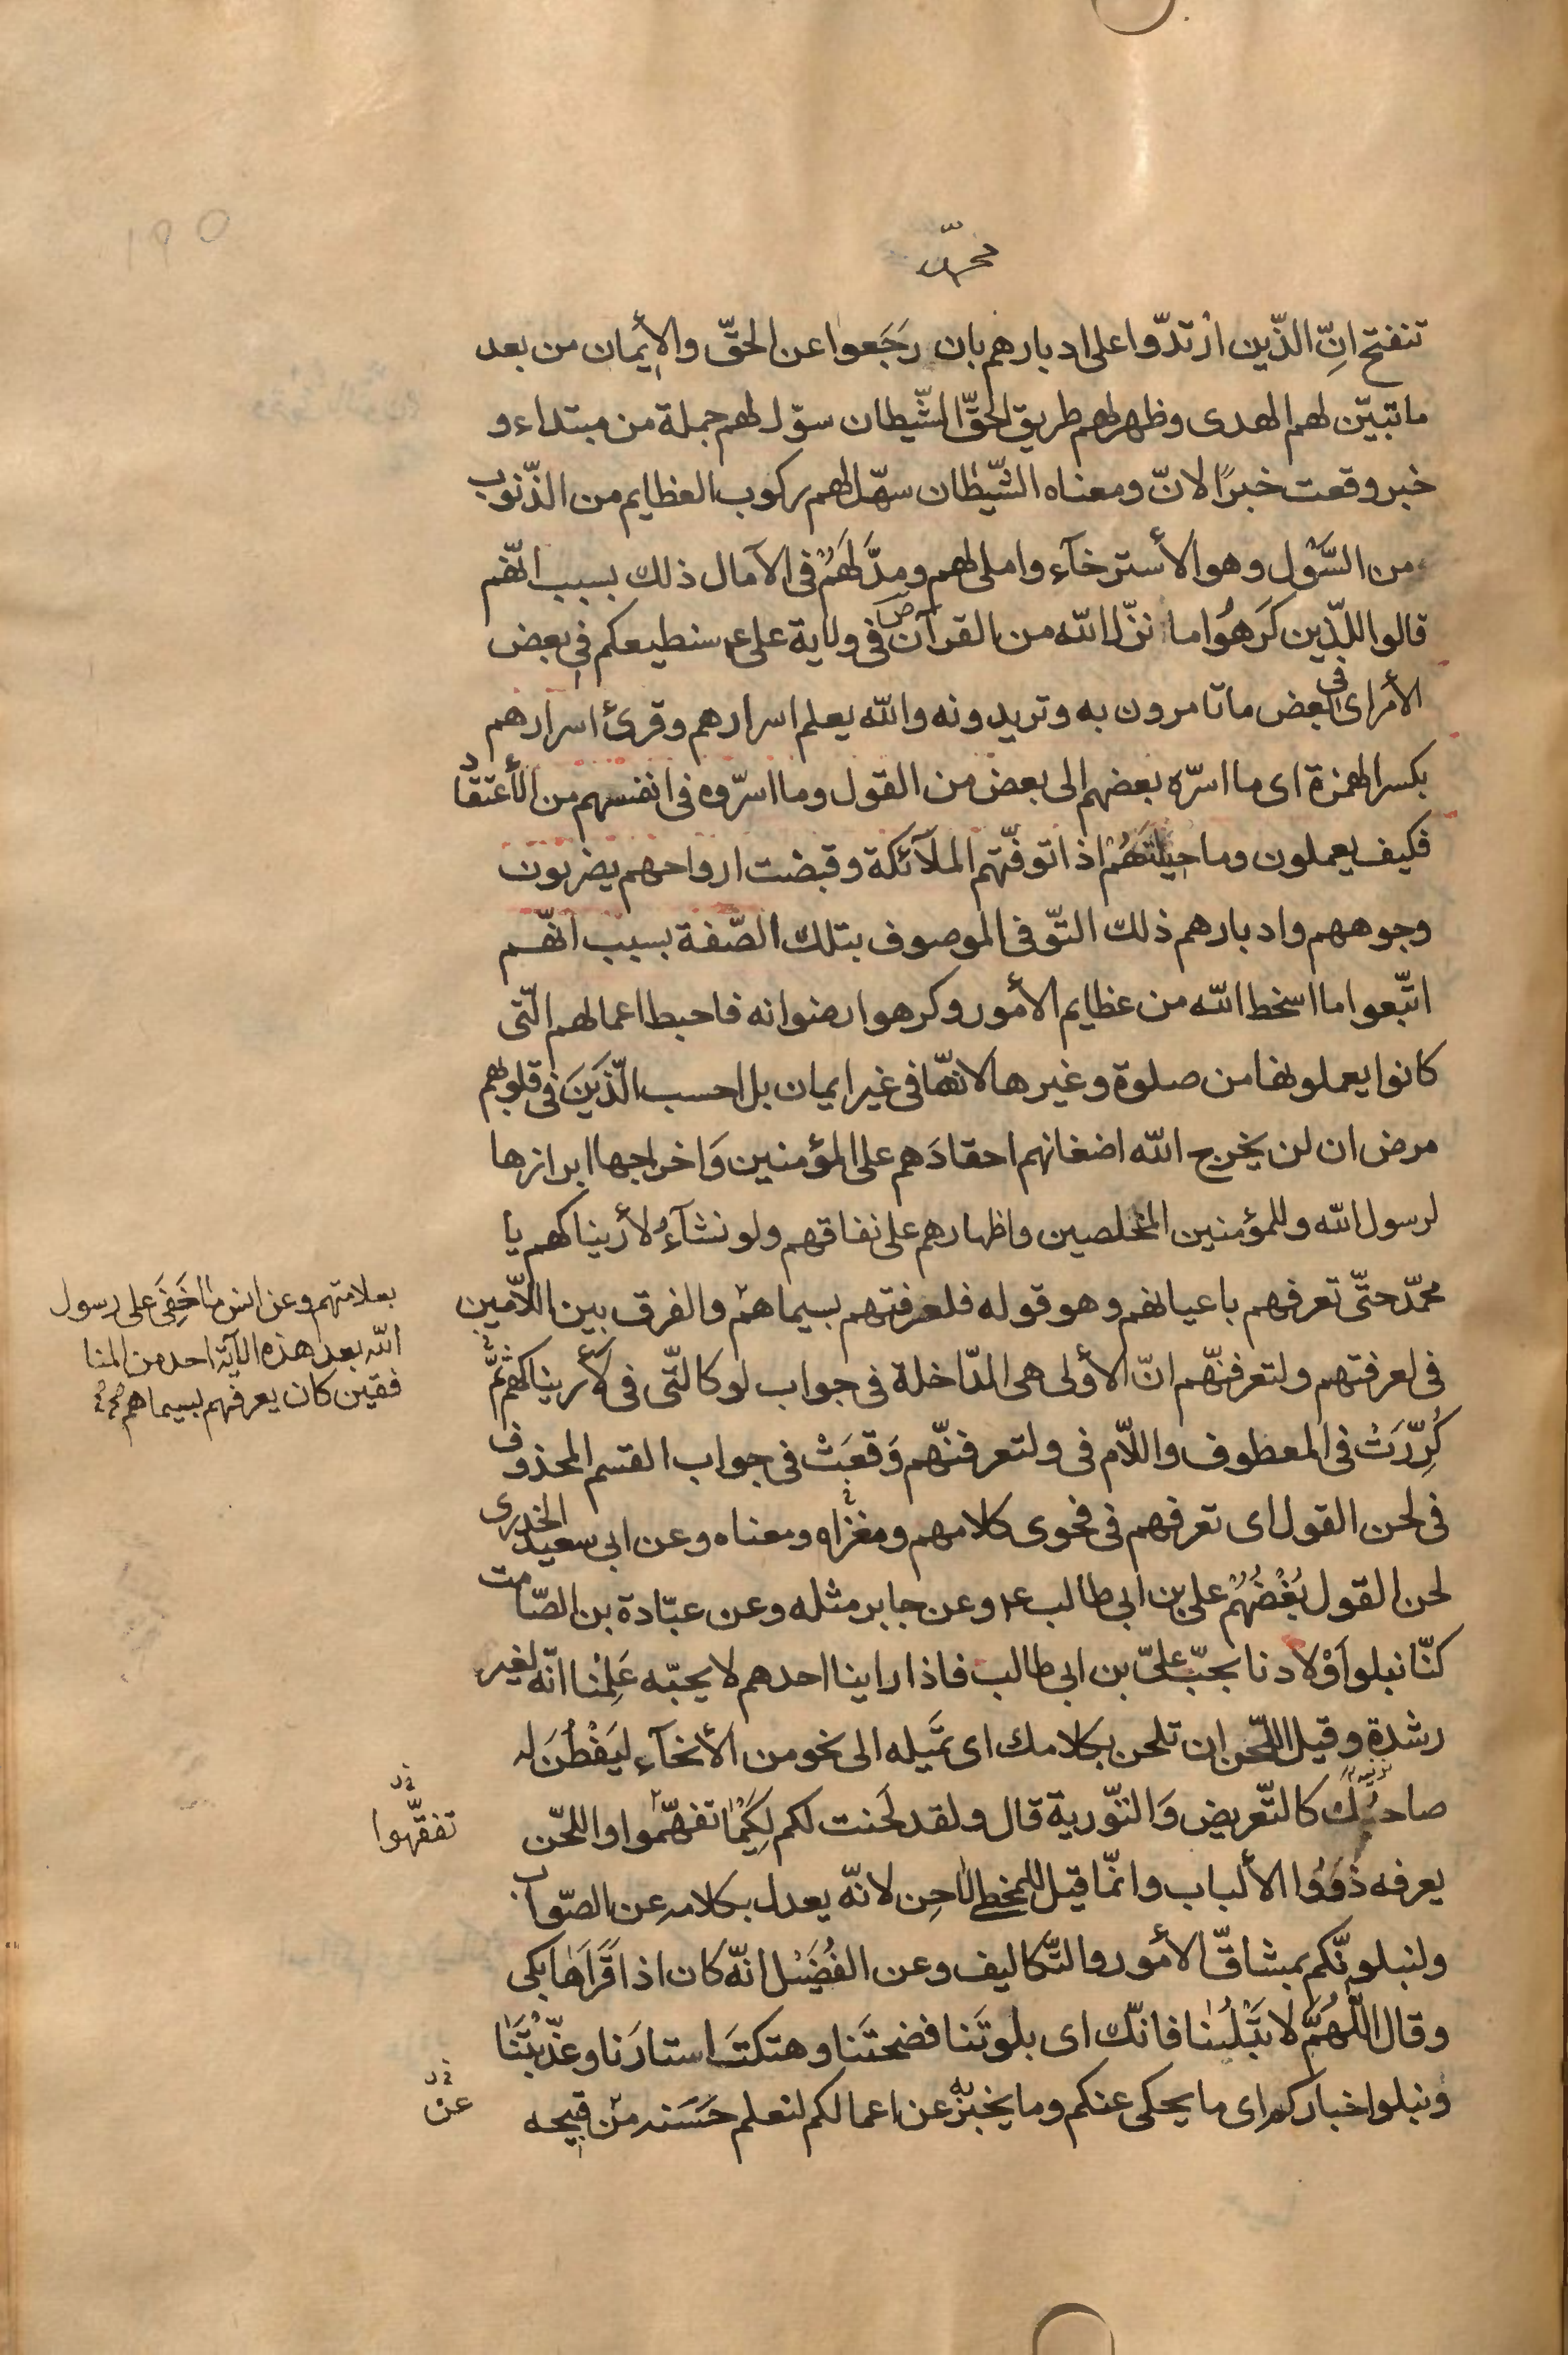 ١٩٥
محمّد
تنفتح انّ الذّين ارْتدّوا على ادبارهم بان رَجَعوا عن الحقّ والأيمان من بعد
ما تبيّن لهم الهدى وظهر لهم طريق الحقّ الشّيطان سوّل لهم جملة من مبتداء و
خبر وقعت خبرًا لانّ ومعناه الشّيطان سهّل لهم ركوب العظايم من الذّنوب
من السَّوْل وهو الأسترخآء واملى لهم ومدَّ لَهُمْ فى الآمال ذلك بسبب انّهم
قالوا للذّين كَرَهُوا ما نزّل الله من القرآن فى ولاية على ع سنطيعكم فى بعض
الأمر اى فى بعض ما تأمرون به وتريدونه والله يعلم اسرارهم وقرئ اسرارهم
بكسر الهمزة اى ما اسرّه بعضهم الى بعض من القول وما اسرّوه فى انفسهم من الأعتقاد
فكيف يعملون وما حيلتهُمْ اذا توفّتهم الملآئكة وقبضت ارواحهم يضربون
وجوههم وادبارهم ذلك التّوفى الموصوف بتلك الصّفة بسبب انّهم
اتّبعوا ما اسخط الله من عظايم الأمور وكرهوا رضوانه فاحبط اعمالهم الّتى
كانوا يعملونها من صلوة وغيرها لانهّا فى غير ايمان بل احسب الّذينَ فى قلوبهم
مرض ان لن يخرج الله اضغانهم احقادَهم على المؤمنين وَاخراجها ابرازها
لرسول الله وللمؤمنين المخلصين واظهارهم على نفاقهم ولو نشآءُ لأريناكهم يا
محمّد حتّى تعرفهم باعيانهم وهو قوله فلعرفتهم بسيماهم والفرق بين اللّامين
فى لعرفتهم ولتعرفنّهم انّ الأولى هى الدّاخلة فى جواب لو كالّتى فى لأريناكهم ثمَّ
كُرِّرَتْ فى المعطوف واللّام فى ولتعرفنّهم وَقعَتْ فى جواب القسم المحذوف
فى لحن القول اى تعرفهم فى فحوى كلامهم ومغزاه ومعناه وعن ابى سعيد الخدرى
لحن القول بُغْضُهُمْ على بن ابى طالب ع وعن جابر مثله وعن عبّادة بن الصّامت
كنّا نبلو اَوْلادنا بحبّ علىّ بن ابى طالب فاذا راينا احدهم لا يحبّه عَلِمْنا انّه لغير
رشدة وقيل اللّحن ان تلحن بكلامك اى تَميله الى نحو من الأنحآء ليَفْطُنَ له
صاحبُكَ كالتّعريض وَالتّورية قال ولقد لَحَنت لكم لكَيْما تفهّموا واللحّن
يعرفه ذَوُوا الألباب وانمّا قيل للمخطى لاحِن لانّه يعدل بكلامه عن الصّواب
ولنبلونّكم بمشاقّ الأمور والتّكاليف وعن الفُضَيْل انّه كان اذا قَرَاَها بكى
وقال اللّهُمَّ لا تبْتَلِنا فانّك اى بلوتَنا فضحتَنا وهتكتَ استارَنا وعذّبْتَنا
ونبلوا اخباركم اى ما يحكى عنكم وما يخبر به عن اعمالكم لنعلم حَسَنه من قبيحه
بعلامتهم وعن انس ما خَفِىَ على رسول
الله بعد هذه الآية احد من المنا
فقين كان يعرفهم بسيماهم
تفقّهوا
عن